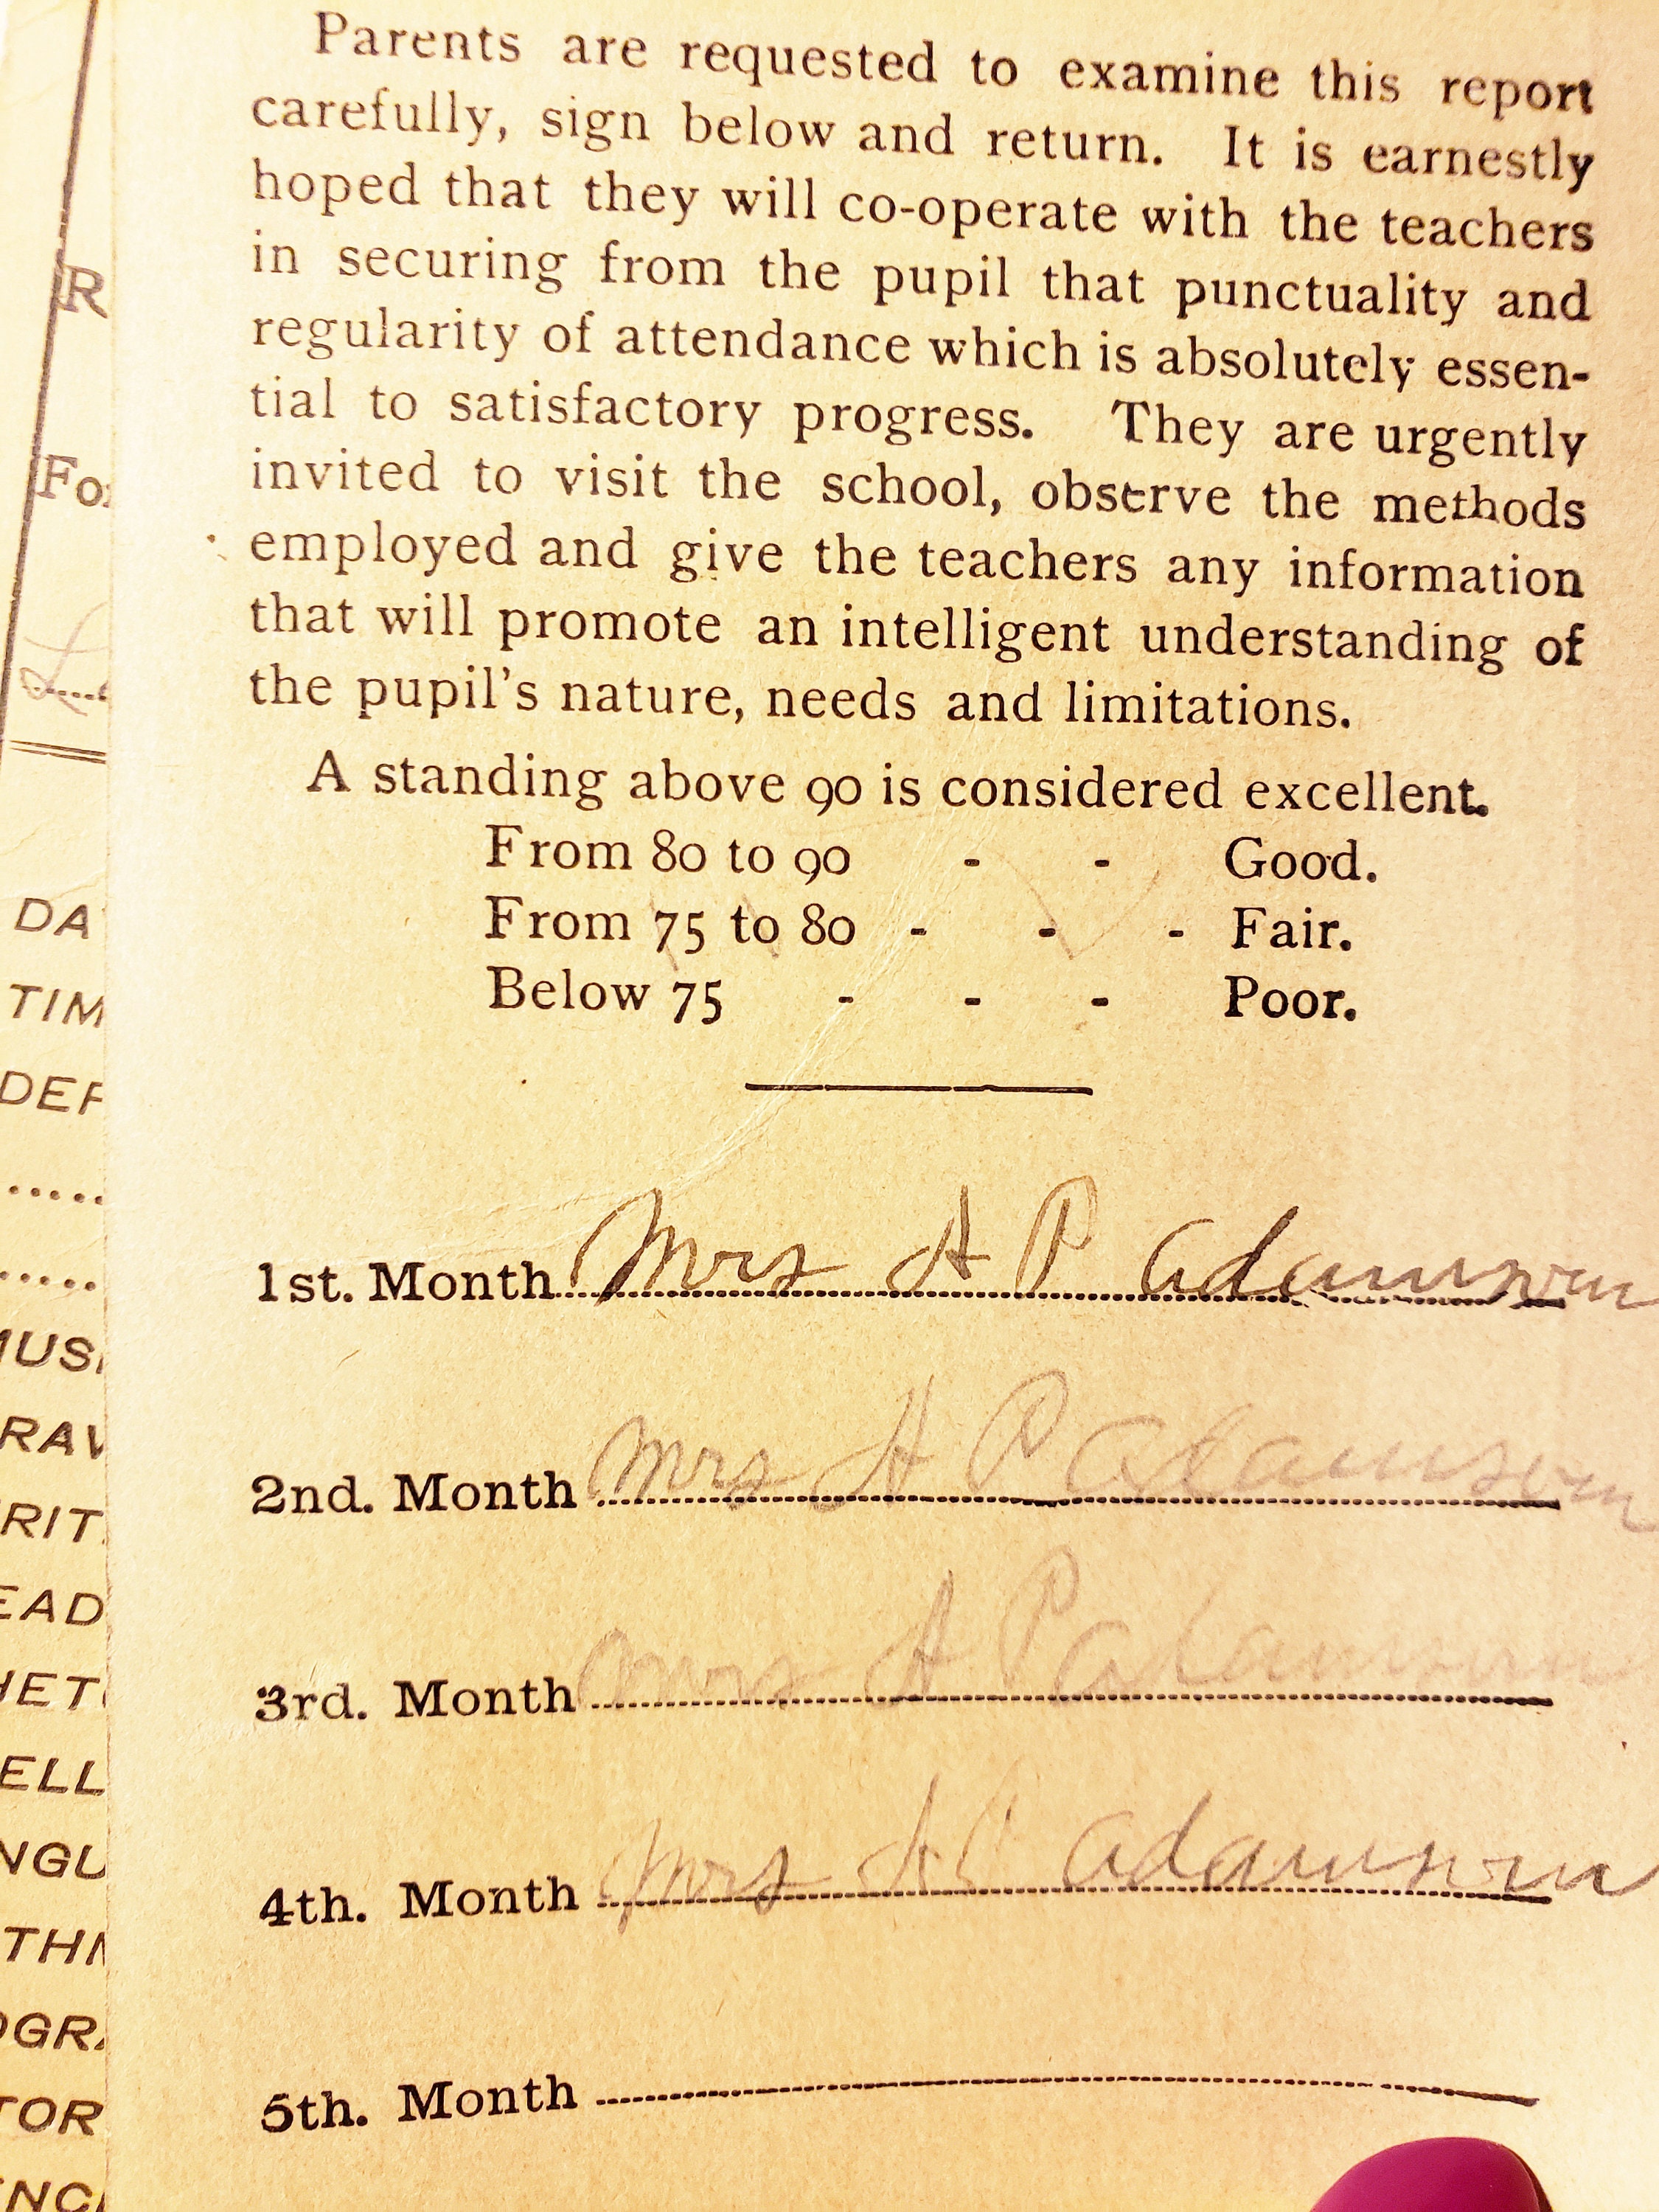 Parents are requested to examine this report
carefully, sign below and return. It is earnestly
hoped that they will co-operate with the teachers
in securing from the pupil that punctuality and
regularity of attendance which is absolutely essen-
tial to satisfactory progress. They are urgently
invited to visit the school, observe the methods
employed and give the teachers any information
that will promote an intelligent understanding of
the pupil's nature, needs and limitations.
A standing above 90 is considered excellent.
From 80 to 90 - - Good.
From 75 to 80 - - - Fair.
Below 75 - - - Poor.
1st. Month Mrs H P Adamson
2nd. Month Mrs H P Adamson
3rd. Month Mrs H P Adamson
4th. Month Mrs H P Adamson
5th. Month
R
Fo
DA
TIM
DEP
MUSI
RAW
RIT
EAD
HET
ELL
NGU
THM
OGRA
TOR
ENC